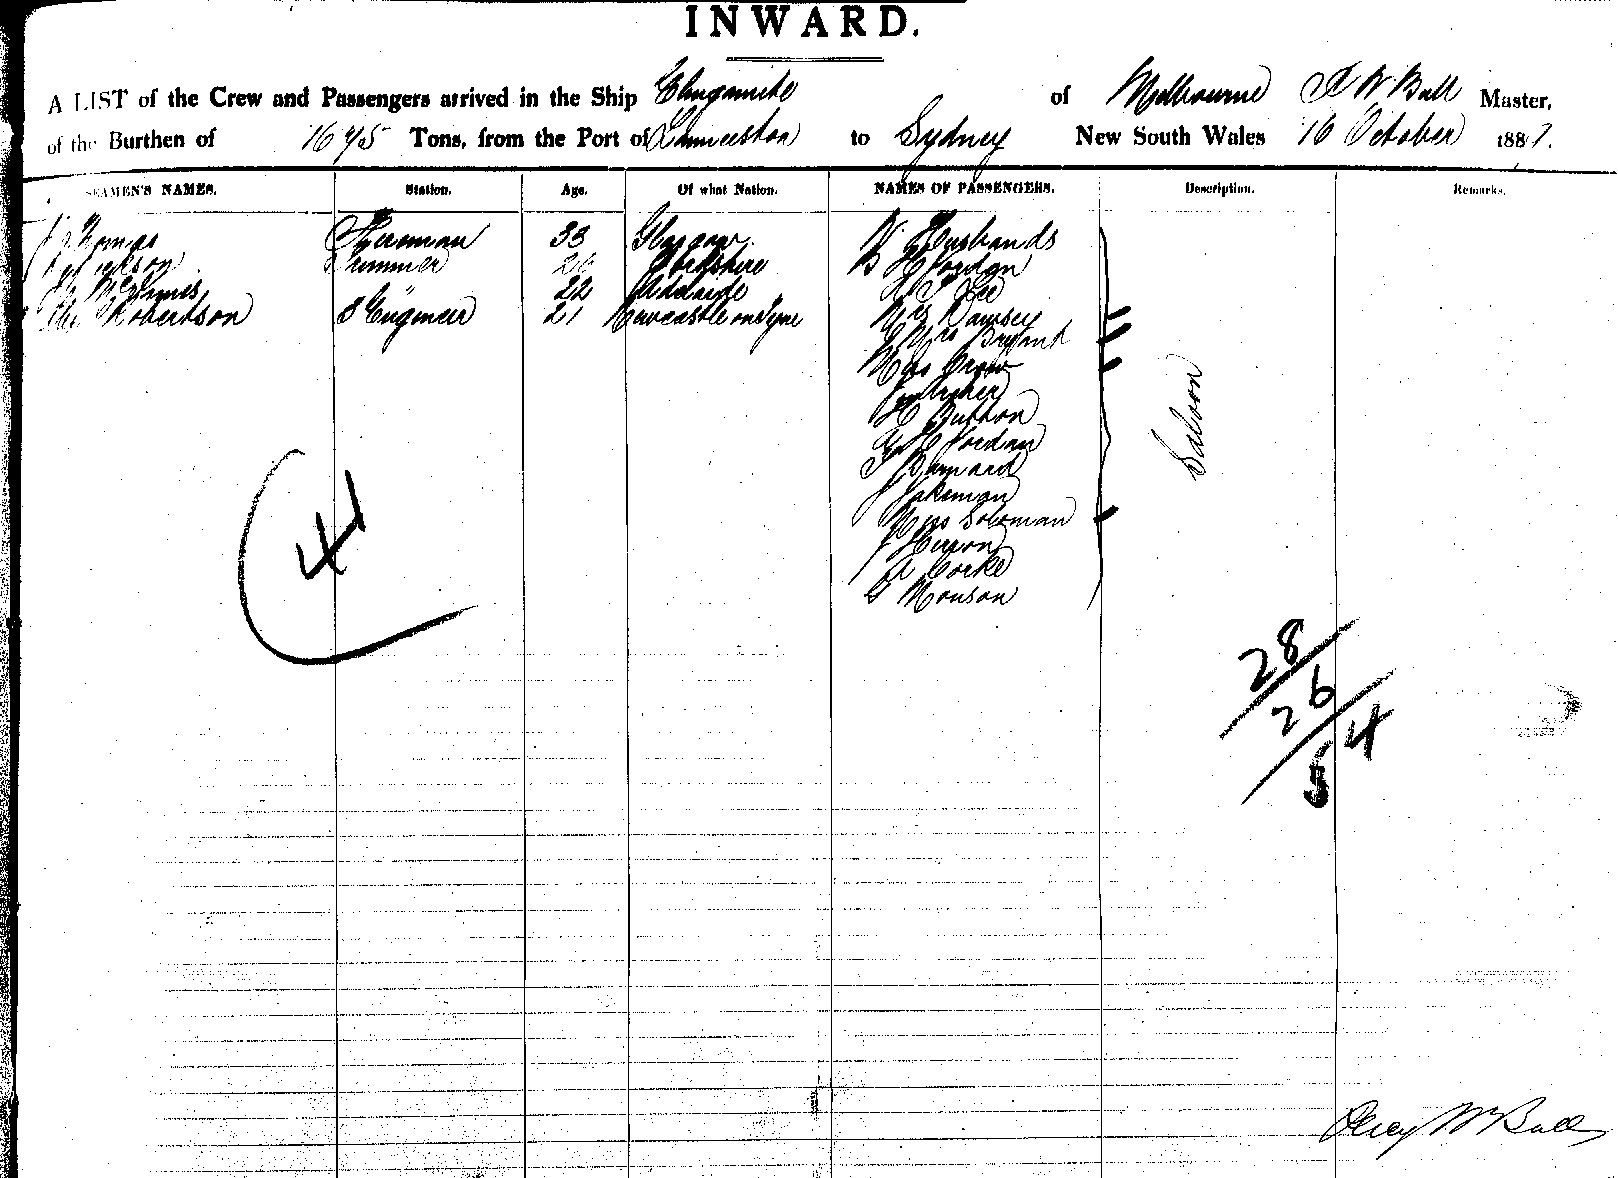 INWARD.
A LIST of the Crew and Passengers arrived in the Ship Elingamite of Melbourne Master,
of the Burthen of 1675 Tons, from the Port of Launceston to Sydney New South Wales 16 October 1887.
SEAMEN'S NAMES. Station. Age. Of what Nation. NAMES OF PASSENGERS. Description. Remarks.
Thomas Fireman 33 Glasgow Husbands
Trimmer Yorkshire Jordan
22 Adelaide Lee
Robertson 3 Engineer 21 Newcastle on Tyne Mrs Ramsey
Mrs Bryant
Button
G H Jordan
Barnard
J Jakeman
Mrs Soloman
Saloon
J Herron
A Corke
G Monson
4
28
26
54
Percy W Bull